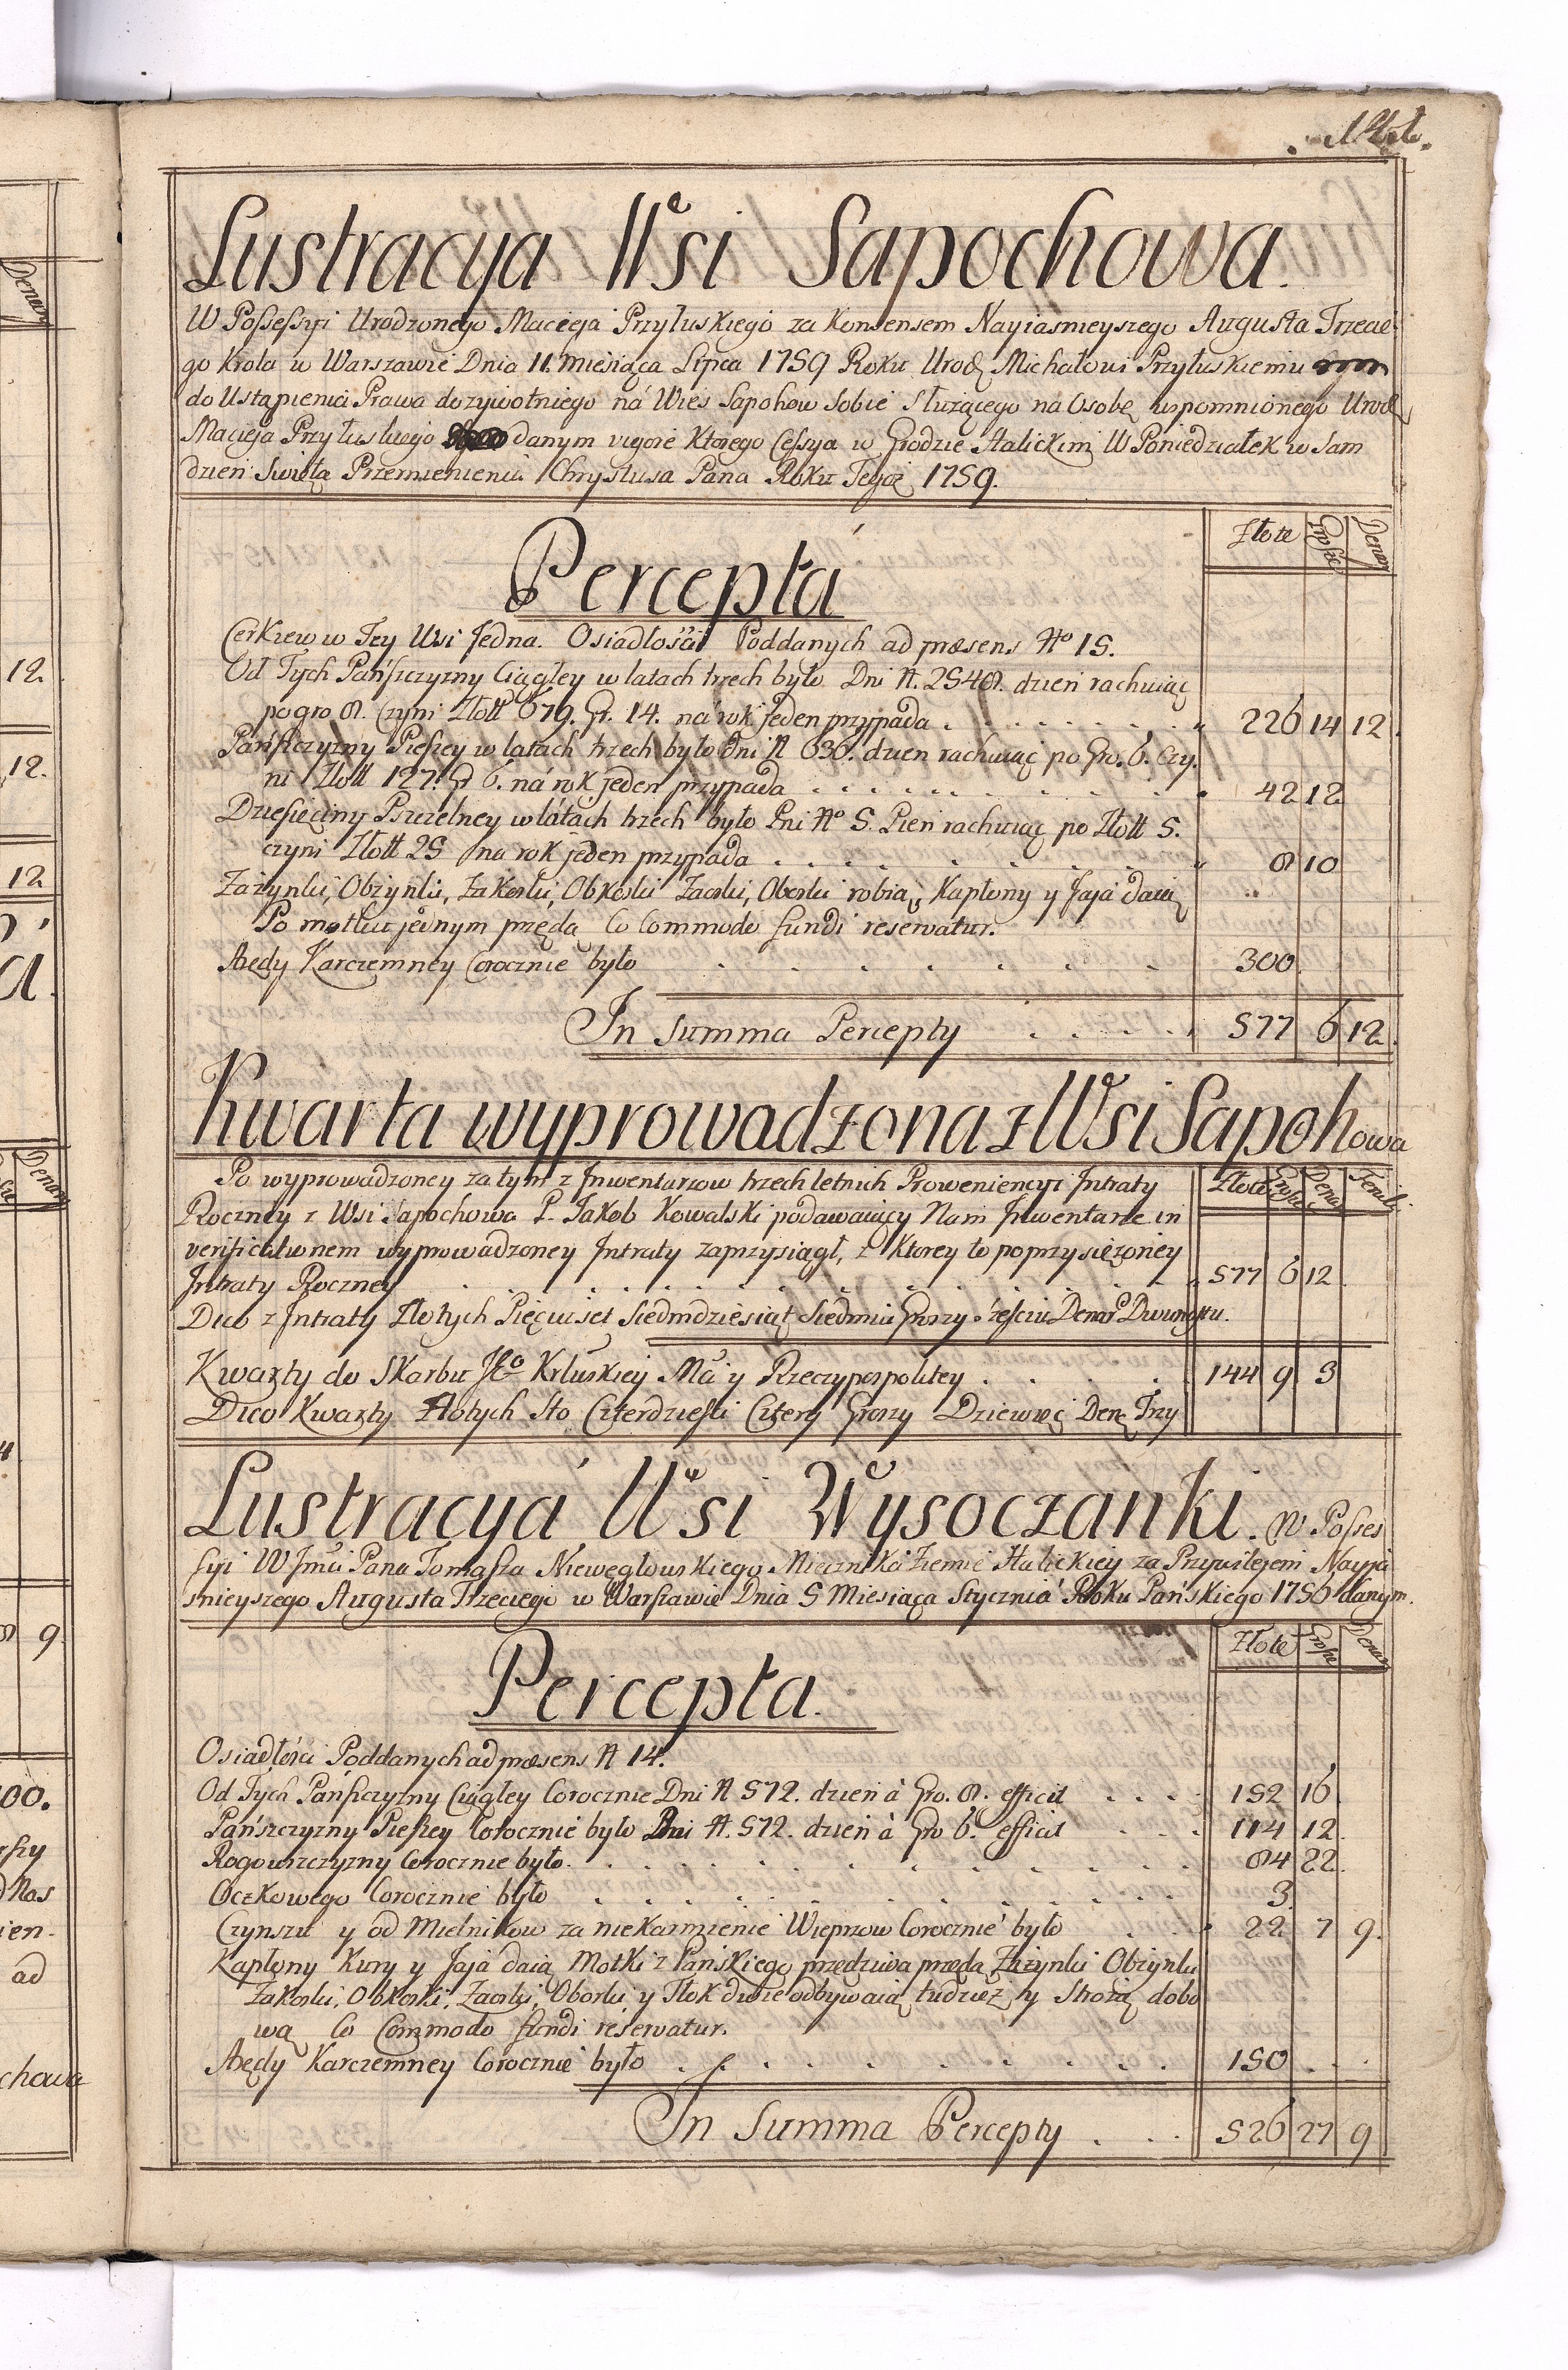 Lustracyja Wsi Sapochowa.
W Possessyi Urodzonego Macieja Przyłuskiego za Konsensem Nayiasnieyszego Augusta Trzecie-
go Krola w Warszawie Dnia 11. Miesiąca Lipca 1759 Roku Urodz Michałowi Przyłuskiemu
do Ustąpienia Prawa dozywotniego ná Wies Sapohow Sobie Służącego na Osobę wspomnionego Urodz
Macieja Przyłuskiego danym vigore Ktorego Cessya w Grodzie Halickim W Poniedziałek w Sam
dzien Swięta Przemienienia Chrystusa Pana Roku Tegoż 1759.
Złote Grosze Denar
Percepta
Cerkiew w Tey Wsi Jedna. Osiadłości Poddanych ad præsens No 15.
Od Tych Pańszczyzny Ciągłey w latach trzech było Dni N. 2548. dzien rachuiąc
po gro 8. Czyni Złott 679. Gr. 14. ná rok jeden przypada . . . . . . . . 226 14 12.
Pańszczyzny Pieszey w latach trzech było Dni N 636. dzien rachuiąc po Gro. 6. czy-
ni Złott 127. Gr 6. ná rok jeden przypada . . . . . . . . . . 42 12
Dziesięciny Pszczelney w latach trzech było Pni No 5. Pien rachuiąc po Złott 5.
czyni Złott 25 na rok jeden przypada . . . . . . . . 8 10
Zażynki, Obżynki, Zakoski, Obkoski Zaorki, Oborki robią, Kapłony y Jaja daią
Po motku jednym przędą Co Commodo fundi reservatur.
Arędy Karczemney Corocznie było . . . . . . . 300.
In Summa Percepty . . . . . 577 6 12.
Kwarta wyprowadzona z Wsi Sapohowa
Po wyprowadzoney zatym z Inwentarzow trzechletnich Proweniencyi Intraty
Złote Grosze Denar
Roczney z Wsi Sapochowa P. Jakob Kowalski podawaiący Nam Inwentarze in
verificationem wyprowadzoney Intraty zaprzysiągł, z Ktorey to poprzysiężoney
Intraty Roczney . . . . . . . . . . . . 577 6 12
Dico z Intraty Złotych Pięcuset Siedmdziesiąt Siedmiu Groszy Sześciu Denar Dwunastu.
Kwarty do Skarbu JKo Krluskiey Mci y Rzeczypospolitey . . . . 144 9 3
Dico Kwarty Złotych Sto Czterdziesci Cztery Groszy Dziewięć Den Trzy
Lustracyá Wsi Wysoczanki. W Posses
syi W Jmci Pana Tomasza Niewęgłowskiego Miecznika Ziemie Halickiey za Przywilejem Nayja
snieyszego Augusta Trzeciego w Warszawie Dnia 5 Miesiąca Stycznia Roku Pańskiego 1756 danym.
Złote Grosze Denar
Percepta.
Osiadłości Poddanych ad præsens N 14.
Od Tych Pańszczyzny Ciągłey Corocznie Dni N 572. dzien à Gro. 8. efficit . . . . 152 16
Pańszczyzny Pieszey Corocznie było Dni N. 572. dzien à Gro 6. efficit . . . 114 12.
Rogowszczyzny Corocznie było. . . . . . . . . . . . 84 22.
Oczkowego Corocznie było . . . . . . . . . . . 3.
Czynszu y od Mielnikow za niekarmienie Wieprzow Corocznie było . . . 22 7 9.
Kapłony Kury y Jaja daią Motki z Pańskiego przędziwa przędą, Zażynki Obżynki
Zakoski, Obkoski, Zaorki, Oborki y Tłok dwie odbywaią tudzież y Strożą dobo
wą Co Commodo fundi reservatur.
Arędy Karczemney Corocznie było . . . . . . . . . . 150. . .
In Summa Percepty . . . 526 27 9
12.
12.
12
a.
Denar
9.
00.
Nas
ien-
ad
chowa